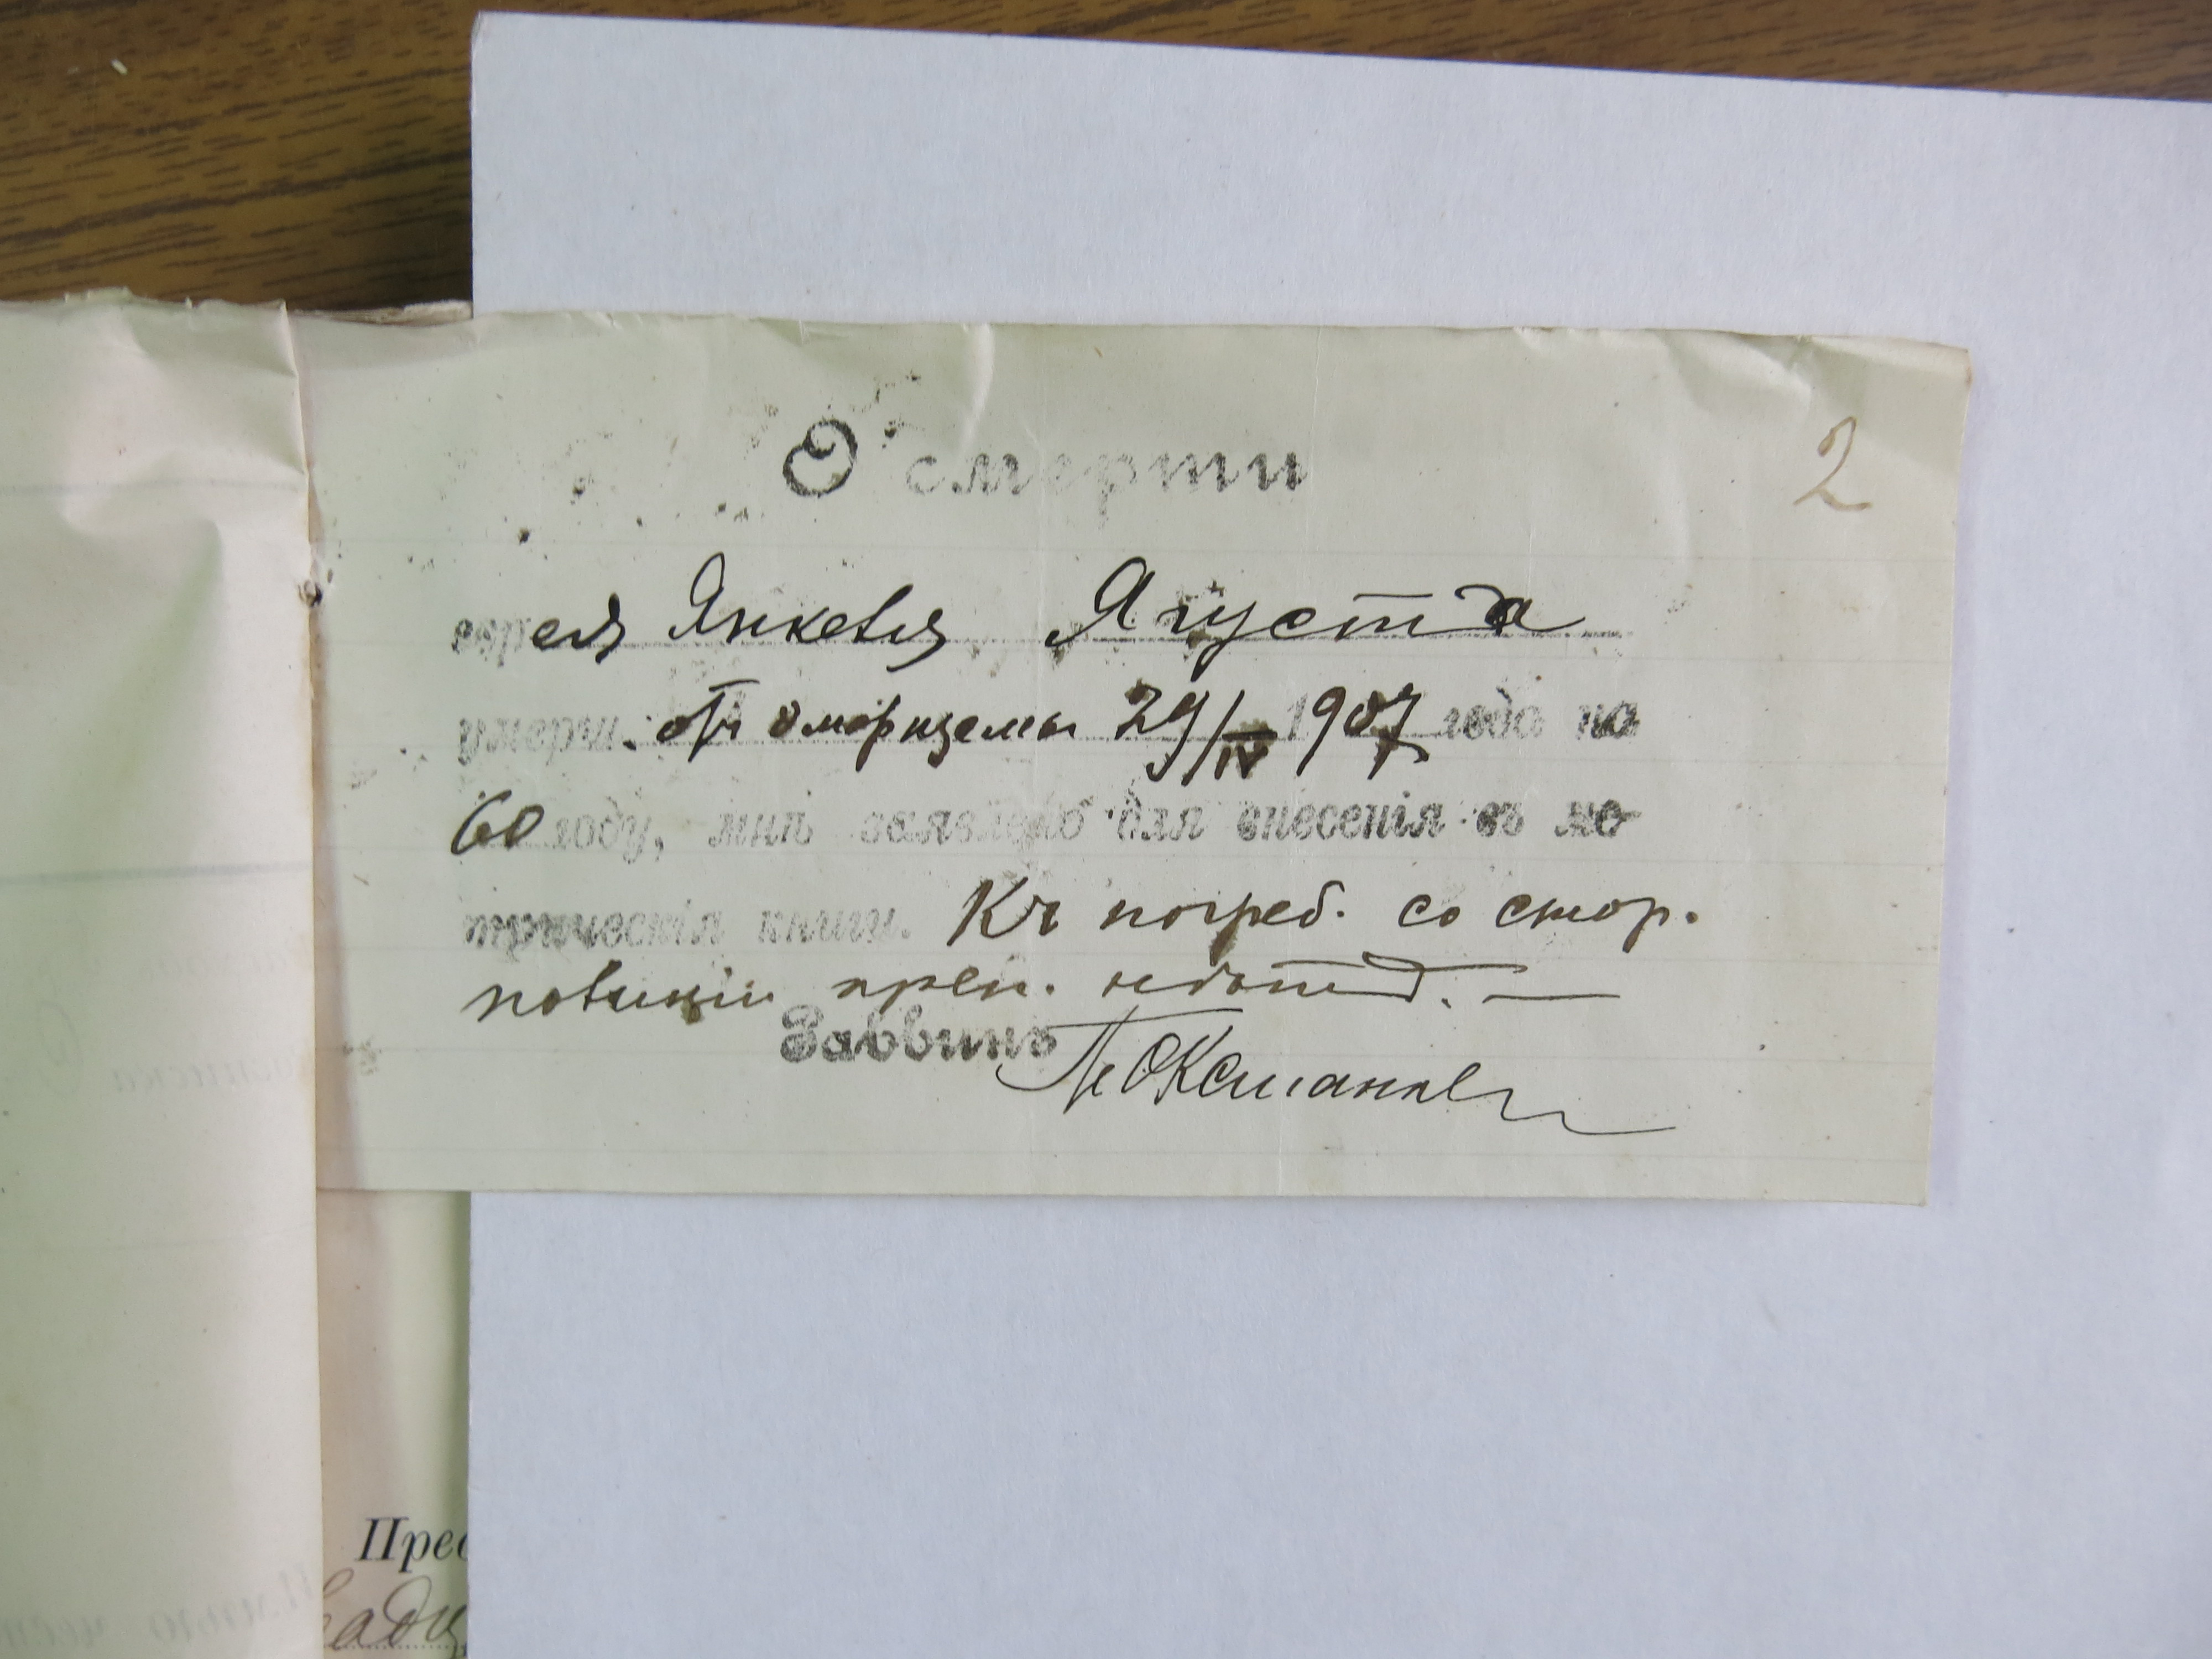 2
О смерти
еля Янкеля Ягуста
умерш. отъ эмфиземы 29/IV 1907 года на
60 году, мнѣ заявлено для внесенія въ ме-
трическія книги. Къ погреб. со стор.
полиціи преп. нѣтъ. —
Раввинъ
Прес